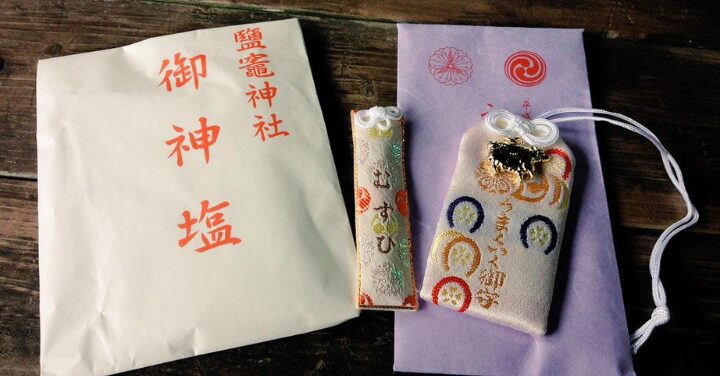 鹽竈神社
御神塩
むすひ
平成
うまくいく御守